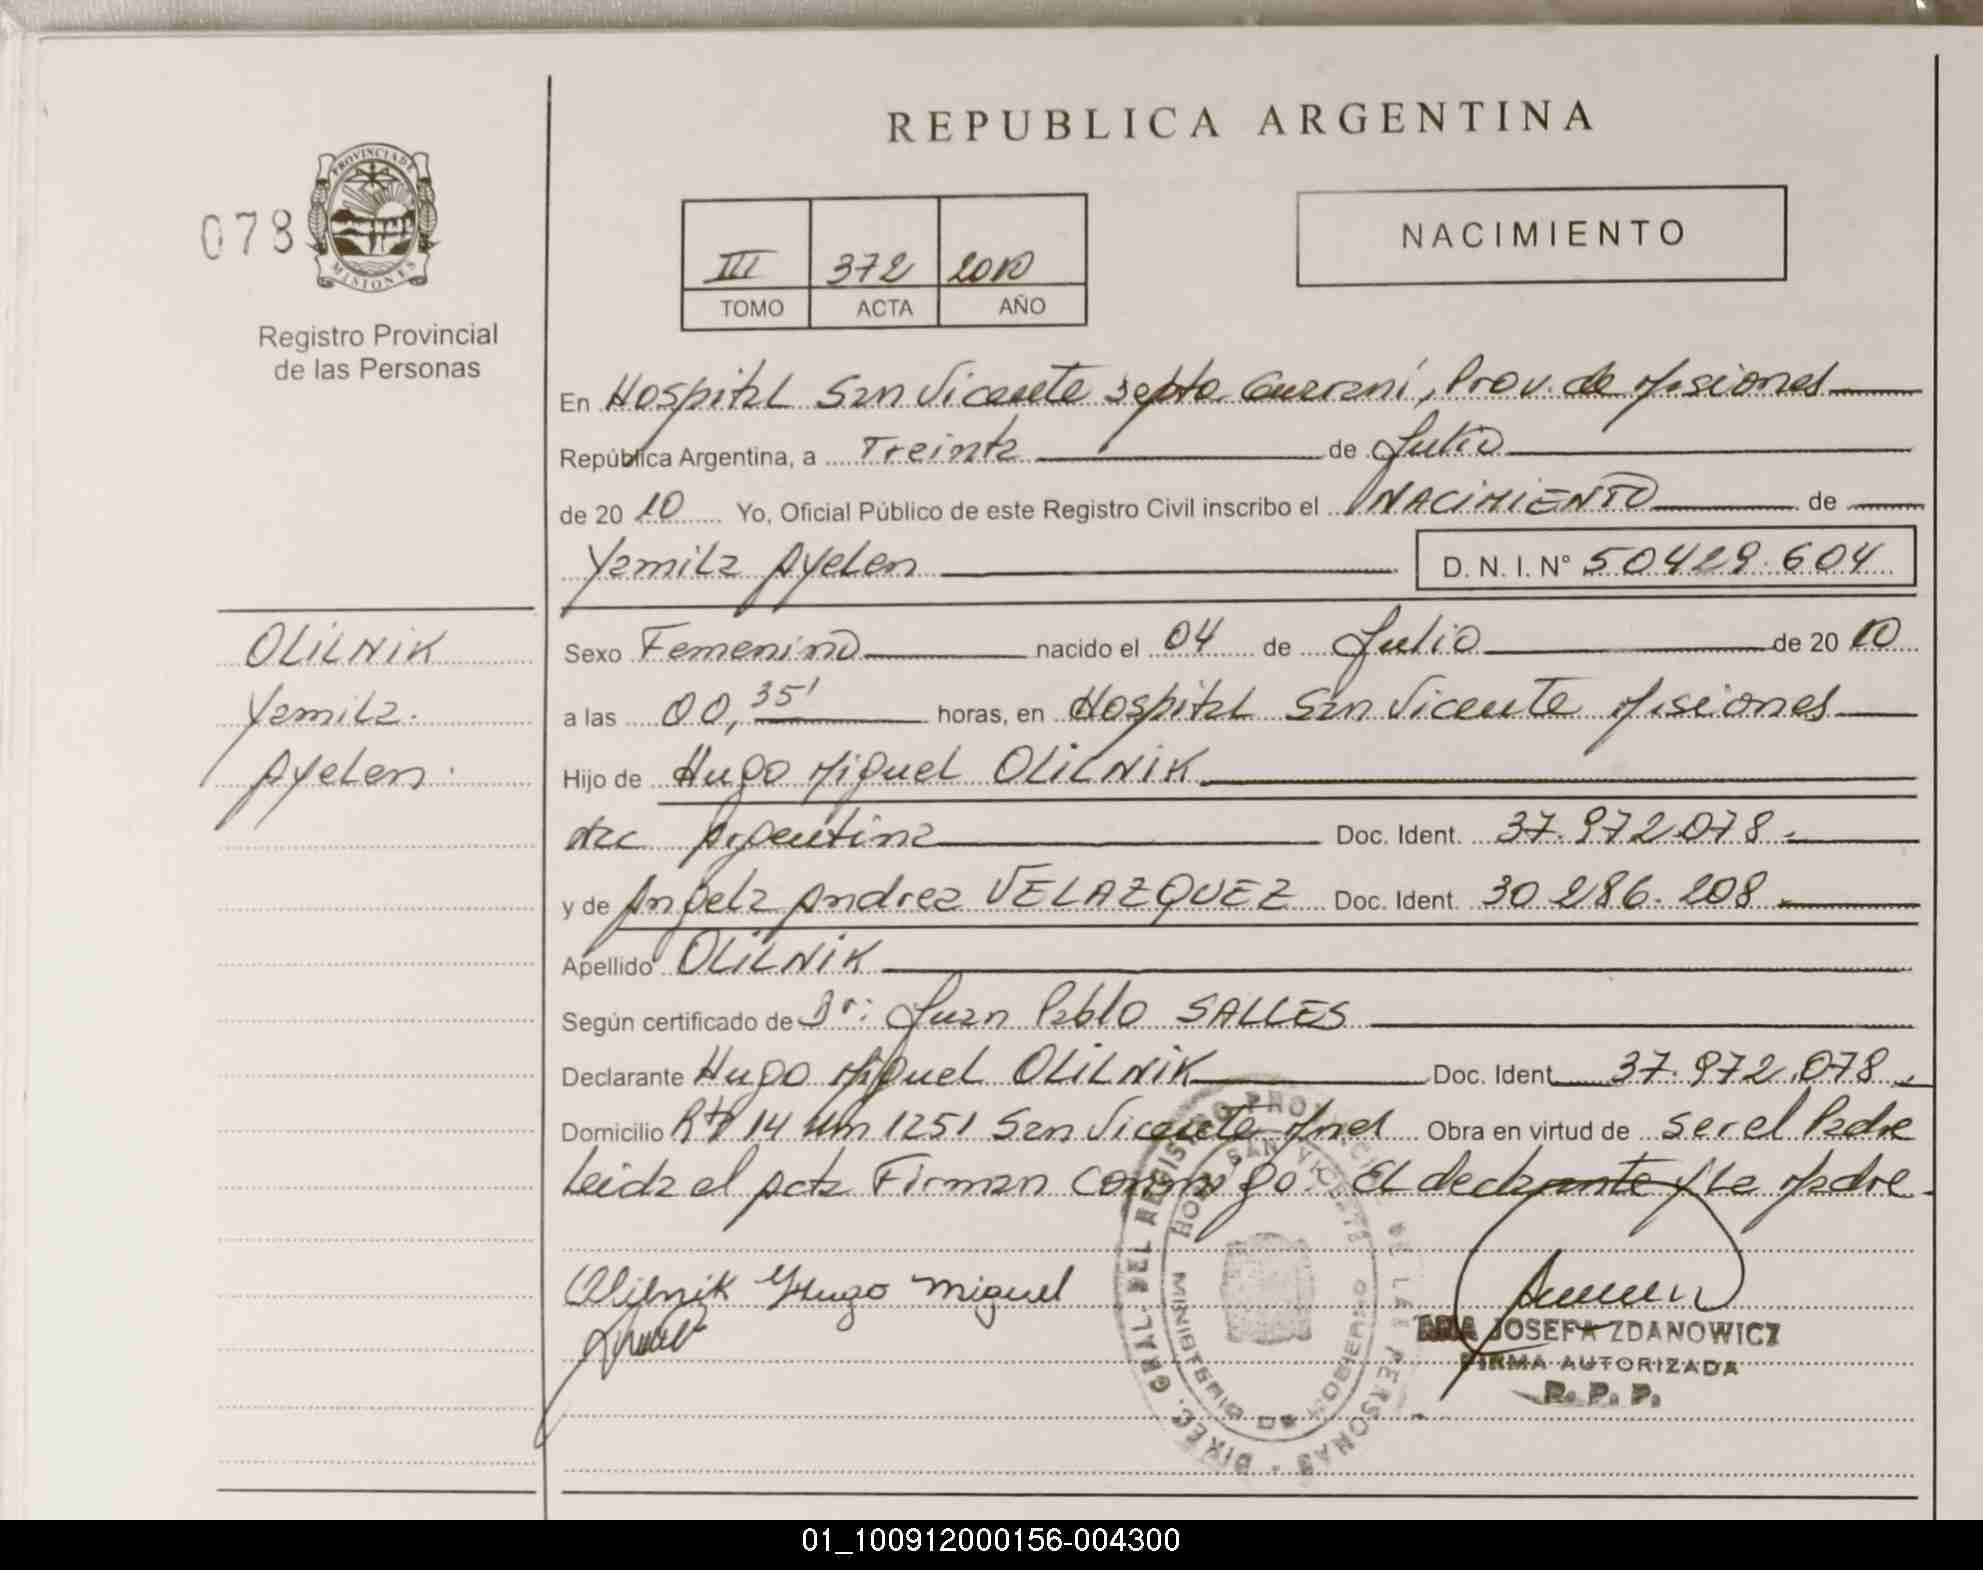 REPUBLICA ARGENTINA
078
PROVINCIA DE
MISIONES
Registro Provincial
de las Personas
III 372 2010
TOMO ACTA AÑO
NACIMIENTO
En Hospital San Vicente Depto. Guaraní, Prov. de Misiones
República Argentina, a Treinta de Julio
de 2010 Yo, Oficial Público de este Registro Civil inscribo el NACIMIENTO de
Yamila Ayelen D. N. I. N° 50429.604
OLILNIK
Yamila.
Ayelen.
Sexo Femenino nacido el 04 de Julio de 2010
a las 00,35' horas, en Hospital San Vicente Misiones
Hijo de Hugo Miguel OLILNIK
Nac Argentina Doc. Ident. 37.972.078.
y de Angela Andrea VELAZQUEZ Doc. Ident. 30 286.208.
Apellido OLILNIK
Según certificado de Dr: Juan Pablo SALLES
Declarante Hugo Miguel OLILNIK Doc. Ident. 37.972.078.
Domicilio Rta 14 Km 1251 San Vicente Mnes Obra en virtud de ser el Padre
Leida el Acta Firman conmigo. El declarante y La Madre.
Olilnik Hugo Miguel
DIREC. GRAL. DEL REGISTRO PROVINCIAL DE LAS PERSONAS
HOSP. SAN VICENTE
MINISTERIO DE GOBIERNO
ANA JOSEFA ZDANOWICZ
FIRMA AUTORIZADA
R. P. P.
01_100912000156-004300